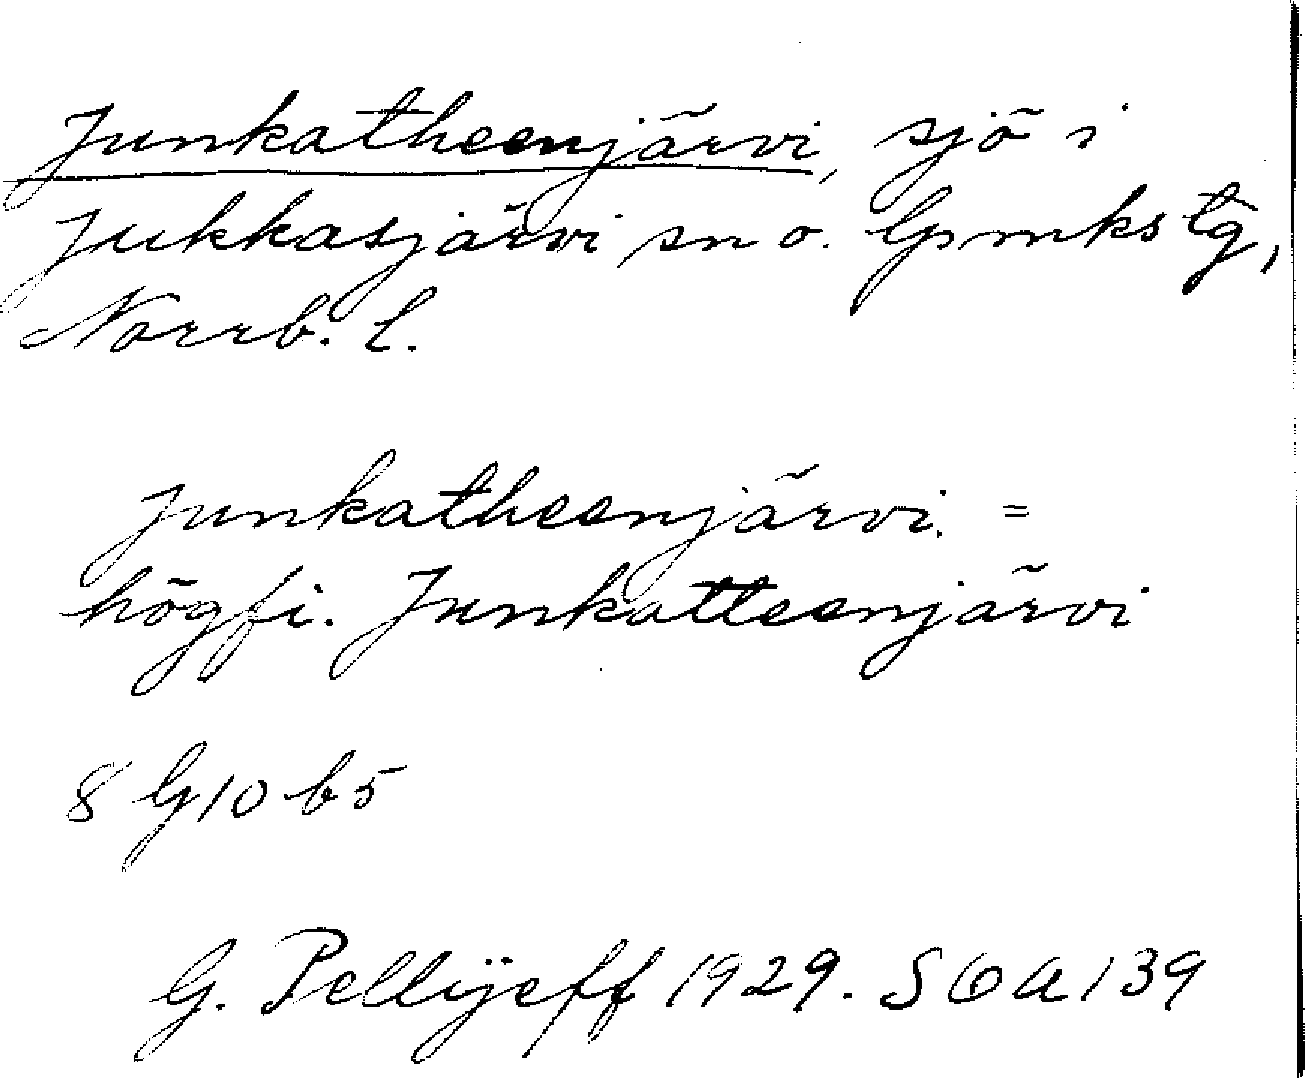 Junkatheenjärvi, sjö i
Jukkasjärvi sn o. Gmks tg,
Norrb. l.
Junkatheenjärvi. =
högfi. Junkatteenjärvi
8 G 10 b 5
G. Pellijeff 1929. SOA 139